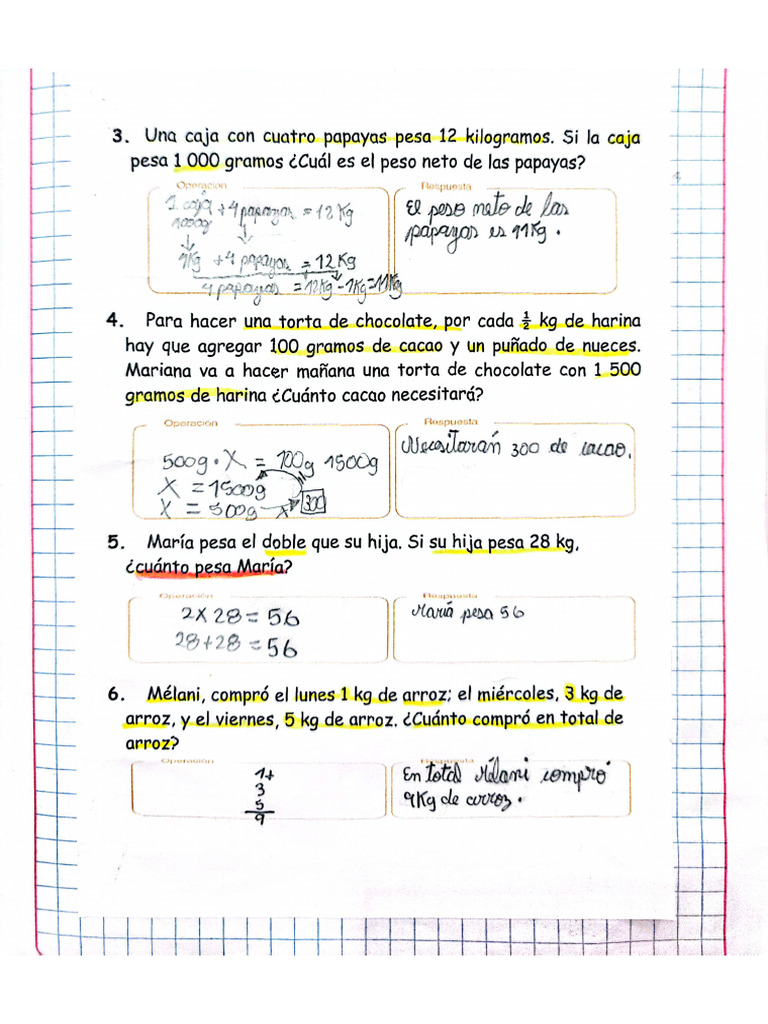 3. Una caja con cuatro papayas pesa 12 kilogramos. Si la caja
pesa 1 000 gramos ¿Cuál es el peso neto de las papayas?
Operación
1 caja + 4 papayas = 12 Kg
1000g
1Kg + 4 papayas = 12 Kg
4 papayas = 12Kg - 1Kg = 11Kg
Respuesta
El peso neto de las
papayas es 11Kg.
4. Para hacer una torta de chocolate, por cada ½ kg de harina
hay que agregar 100 gramos de cacao y un puñado de nueces.
Mariana va a hacer mañana una torta de chocolate con 1 500
gramos de harina ¿Cuánto cacao necesitará?
Operación
500g · X = 100g 1500g
X = 1500g
X = 500g 300
Respuesta
Necesitarán 300 de cacao.
5. María pesa el doble que su hija. Si su hija pesa 28 kg,
¿cuánto pesa María?
Operación
2 x 28 = 56
28 + 28 = 56
Respuesta
María pesa 56
6. Mélani, compró el lunes 1 kg de arroz; el miércoles, 3 kg de
arroz, y el viernes, 5 kg de arroz. ¿Cuánto compró en total de
arroz?
Operación
1+
3
5
9
Respuesta
En total Mélani compró
9Kg de arroz.